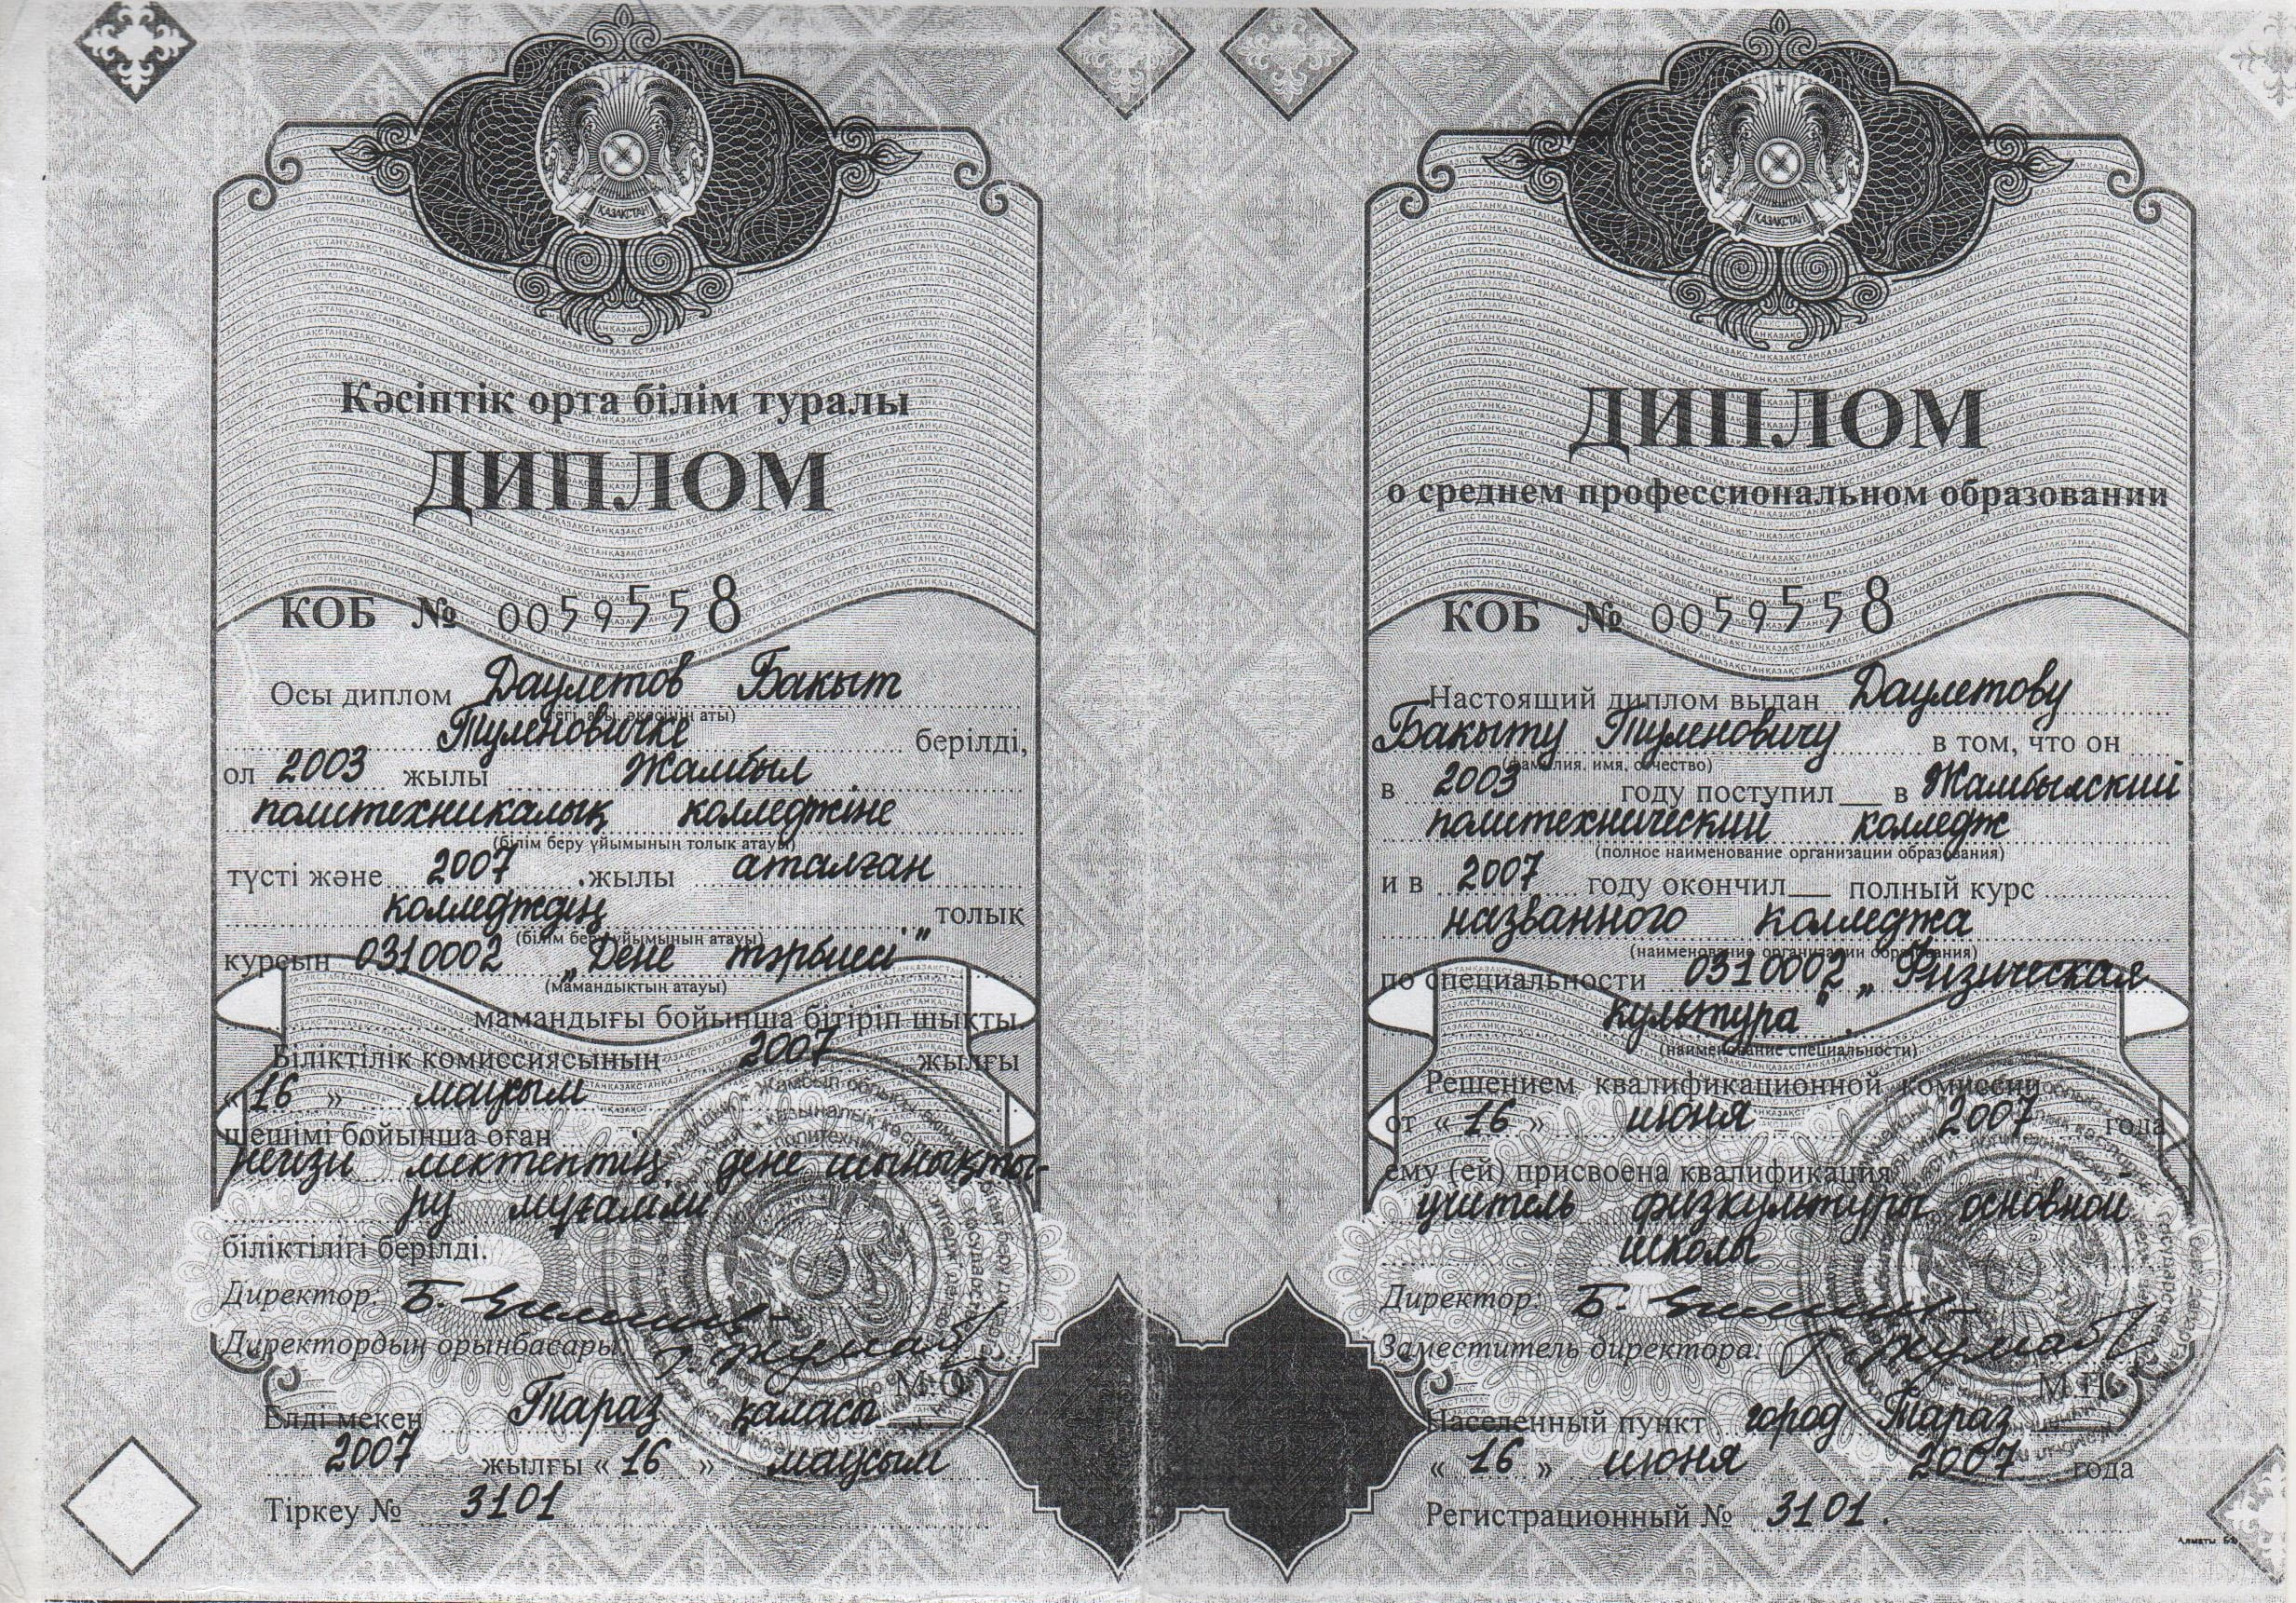 ҚАЗАҚСТАН
Кәсіптік орта білім туралы
ДИПЛОМ
КОБ № 0059558
Осы диплом Даулетов Бакыт
(тегі, аты, әкесінің аты)
Туленовичке берілді,
ол 2003 жылы Жамбыл
политехникалық колледжіне
(білім беру ұйымының толық атауы)
түсті және 2007 жылы аталған
колледждің толық
(білім беру ұйымының атауы)
курсын 0310002 „Дене тәрбиесі"
(мамандықтың атауы)
мамандығы бойынша бітіріп шықты.
Біліктілік комиссиясының 2007 жылғы
« 16 » маусым
шешімі бойынша оған
негізгі мектептің дене шынықты-
ру мұғалімі
біліктілігі берілді.
Директор: Б.
Директордың орынбасары:
М.О.
Елді мекен Тараз қаласы
2007 жылғы « 16 » маусым
Тіркеу № 3101
ҚАЗАҚСТАН
ДИПЛОМ
о среднем профессиональном образовании
КОБ № 0059558
Настоящий диплом выдан Даулетову
Бакыту Туленовичу в том, что он
(фамилия, имя, отчество)
в 2003 году поступил в Жамбылский
политехнический колледж
(полное наименование организации образования)
и в 2007 году окончил полный курс
названного колледжа
(наименование организации образования)
по специальности 0310002 „Физическая
культура".
(наименование специальности)
Решением квалификационной комиссии
от « 16 » июня 2007 года
ему (ей) присвоена квалификация
учитель физкультуры основной
школы
Директор: Б.
Заместитель директора:
М.П.
Населенный пункт город Тараз
« 16 » июня 2007 года
Регистрационный № 3101.